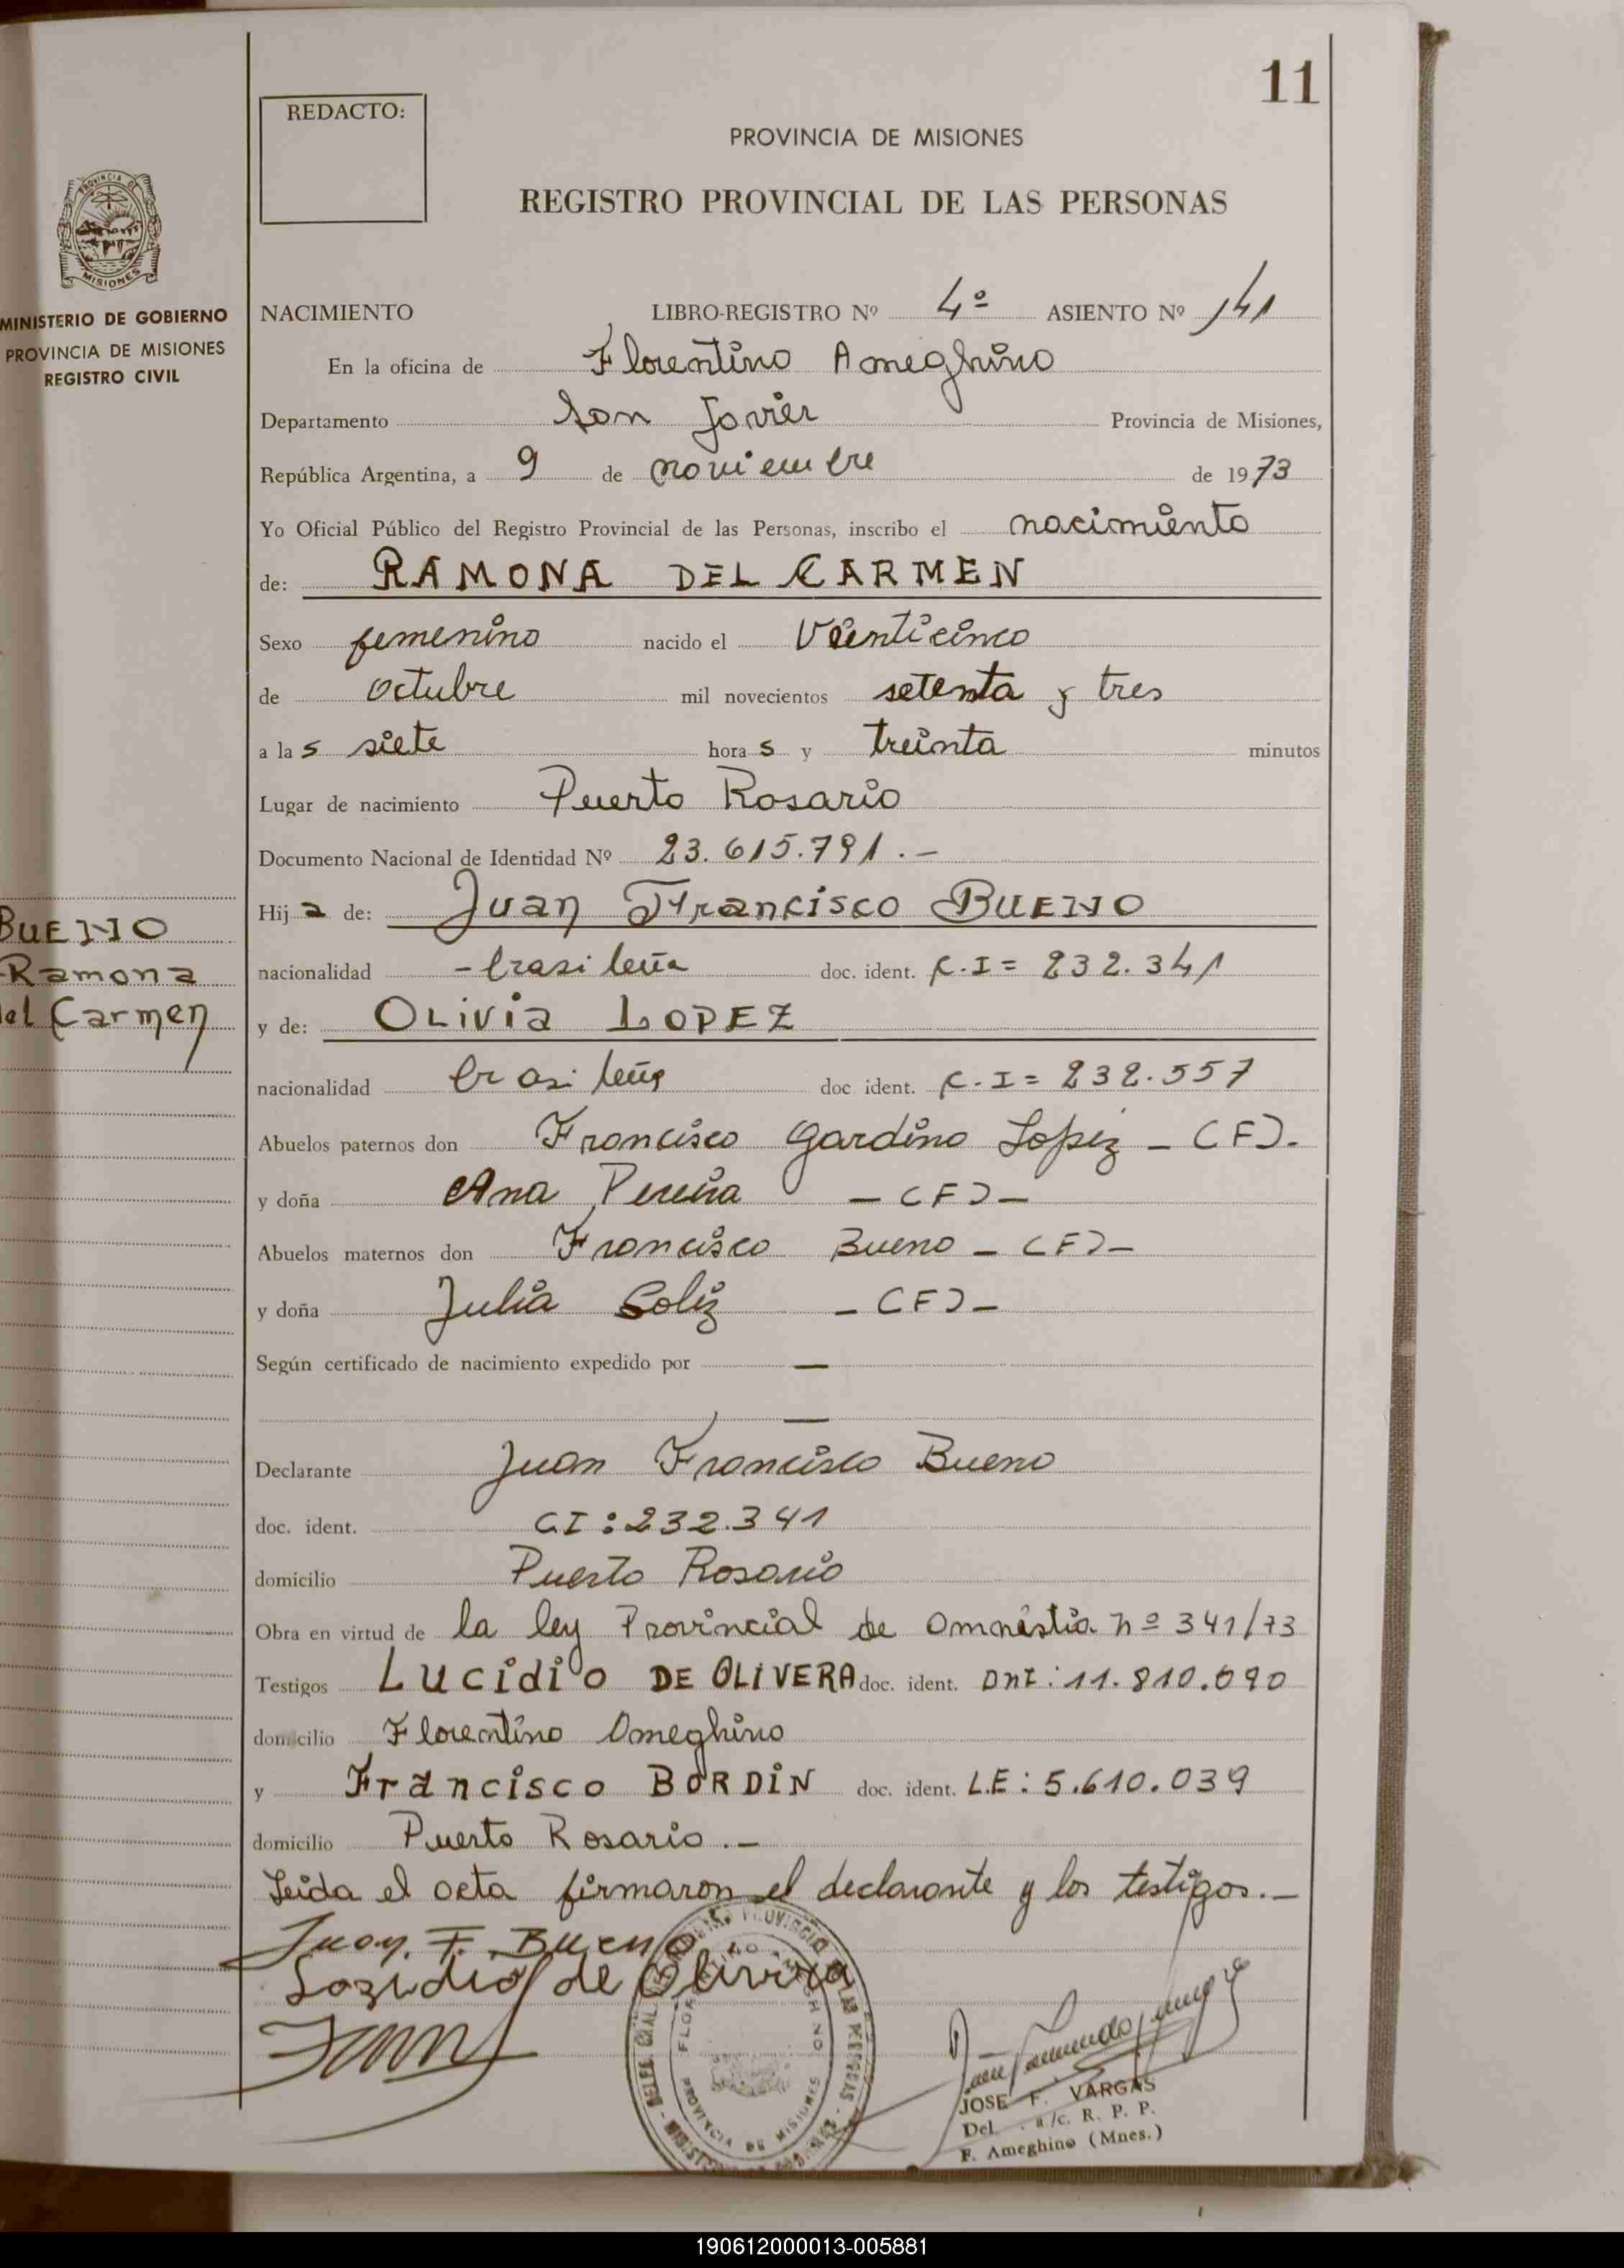 11
REDACTO:
PROVINCIA DE MISIONES
REGISTRO PROVINCIAL DE LAS PERSONAS
PROVINCIA DE
MISIONES
MINISTERIO DE GOBIERNO
PROVINCIA DE MISIONES
REGISTRO CIVIL
NACIMIENTO LIBRO-REGISTRO Nº 4º ASIENTO Nº 141
En la oficina de Florentino Ameghino
Departamento San Javier Provincia de Misiones,
República Argentina, a 9 de noviembre de 1973
Yo Oficial Público del Registro Provincial de las Personas, inscribo el nacimiento
de: RAMONA DEL CARMEN
Sexo femenino nacido el Veinticinco
de octubre mil novecientos setenta y tres
a las siete horas y treinta minutos
Lugar de nacimiento Puerto Rosario
Documento Nacional de Identidad Nº 23.615.791.-
Hija de: Juan Francisco BUENO
nacionalidad - brasileña doc. ident. C.I= 232.341
y de: OLIVIA LOPEZ
nacionalidad brasileña doc. ident. C.I= 232.557
Abuelos paternos don Francisco Gardino Lopez - (F).
y doña Ana Pereira - (F) -
Abuelos maternos don Francisco Bueno - (F) -
y doña Julia Soliz - (F) -
Según certificado de nacimiento expedido por —
—
Declarante Juan Francisco Bueno
doc. ident. C.I: 232.341
domicilio Puerto Rosario
Obra en virtud de la ley Provincial de Amnistia nº 341/73
Testigos LUCIDIO DE OLIVERA doc. ident. DNI: 11.810.090
domicilio Florentino Ameghino
y Francisco BORDIN doc. ident. L.E: 5.610.039
domicilio Puerto Rosario.-
Leida el acta firmaron el declarante y los testigos.-
BUENO
Ramona
del Carmen
Juan. F. Bueno
Lozidio de Olivira
PROVINCIA DE MISIONES
JOSE F. VARGAS
Del. a/c. R. P. P.
F. Ameghino (Mnes.)
190612000013-005881